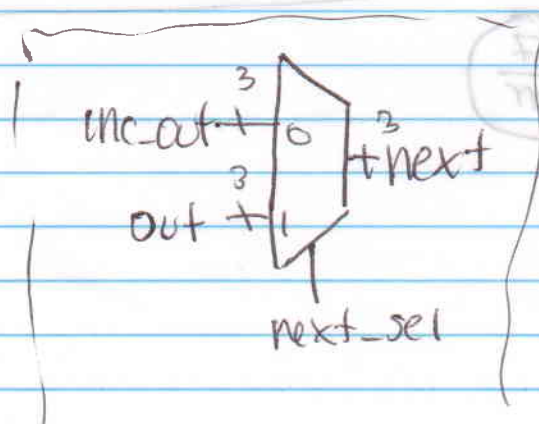 3
inc_out 0
3
next
3
out 1
next_sel